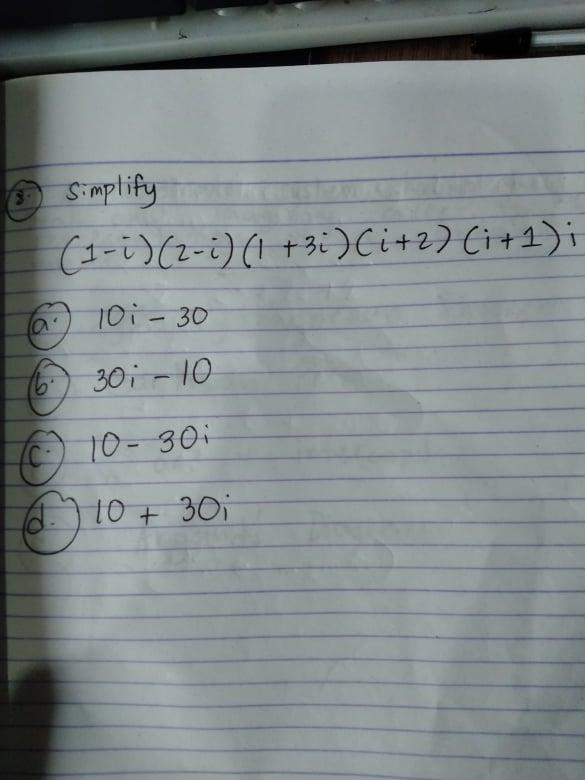 8. Simplify
(1-i)(2-i)(1+3i)(i+2)(i+1)i
a. 10i - 30
b. 30i - 10
c. 10 - 30i
d. 10 + 30i